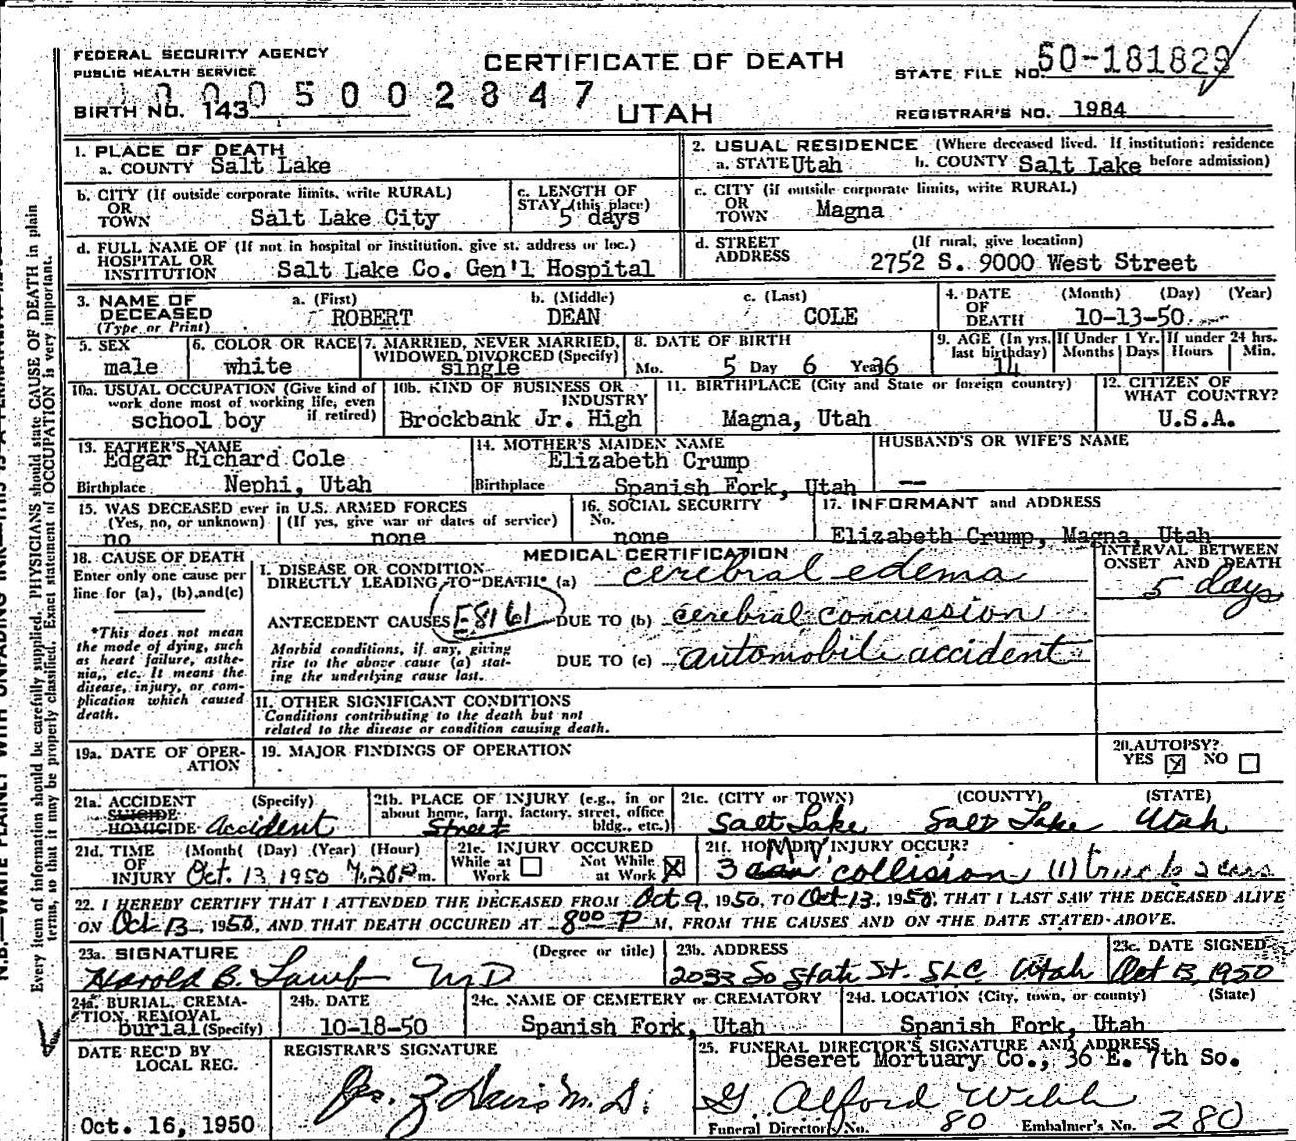 FEDERAL SECURITY AGENCY
PUBLIC HEALTH SERVICE
CERTIFICATE OF DEATH
UTAH
STATE FILE NO. 50-181829
0005002847
BIRTH NO. 143
REGISTRAR'S NO. 1984
1. PLACE OF DEATH
a. COUNTY Salt Lake
2. USUAL RESIDENCE (Where deceased lived. If institution: residence before admission)
a. STATE Utah b. COUNTY Salt Lake
b. CITY (If outside corporate limits, write RURAL)
OR TOWN Salt Lake City
c. LENGTH OF STAY (this place)
5 days
c. CITY (if outside corporate limits, write RURAL)
OR TOWN Magna
d. FULL NAME OF (If not in hospital or institution, give st. address or loc.)
HOSPITAL OR INSTITUTION Salt Lake Co. Gen'l Hospital
d. STREET ADDRESS (If rural, give location)
2752 S. 9000 West Street
3. NAME OF DECEASED (Type or Print)
a. (First) b. (Middle) c. (Last)
ROBERT DEAN COLE
4. DATE OF DEATH (Month) (Day) (Year)
10-13-50
5. SEX
male
6. COLOR OR RACE
white
7. MARRIED, NEVER MARRIED, WIDOWED, DIVORCED (Specify)
single
8. DATE OF BIRTH
Mo. 5 Day 6 Year 36
9. AGE (In yrs. last birthday)
14
If Under 1 Yr. Months Days
If under 24 hrs. Hours Min.
10a. USUAL OCCUPATION (Give kind of work done most of working life, even if retired)
school boy
10b. KIND OF BUSINESS OR INDUSTRY
Brockbank Jr. High
11. BIRTHPLACE (City and State or foreign country)
Magna, Utah
12. CITIZEN OF WHAT COUNTRY?
U.S.A.
13. FATHER'S NAME
Edgar Richard Cole
Birthplace Nephi, Utah
14. MOTHER'S MAIDEN NAME
Elizabeth Crump
Birthplace Spanish Fork, Utah
HUSBAND'S OR WIFE'S NAME
—
15. WAS DECEASED ever in U.S. ARMED FORCES
(Yes, no, or unknown) (If yes, give war or dates of service)
no none
16. SOCIAL SECURITY No.
none
17. INFORMANT and ADDRESS
Elizabeth Crump, Magna, Utah
18. CAUSE OF DEATH
Enter only one cause per line for (a), (b), and (c)
*This does not mean the mode of dying, such as heart failure, asthenia, etc. It means the disease, injury, or complication which caused death.
MEDICAL CERTIFICATION
I. DISEASE OR CONDITION DIRECTLY LEADING TO DEATH* (a) cerebral edema
INTERVAL BETWEEN ONSET AND DEATH
5 days
ANTECEDENT CAUSES E8161 DUE TO (b) cerebral concussion
Morbid conditions, if any, giving rise to the above cause (a) stating the underlying cause last.
DUE TO (c) automobile accident
II. OTHER SIGNIFICANT CONDITIONS
Conditions contributing to the death but not related to the disease or condition causing death.
19a. DATE OF OPERATION
19. MAJOR FINDINGS OF OPERATION
20. AUTOPSY?
YES X NO
21a. ACCIDENT (Specify)
SUICIDE
HOMICIDE Accident
21b. PLACE OF INJURY (e.g., in or about home, farm, factory, street, office bldg., etc.)
Street
21c. (CITY or TOWN) (COUNTY) (STATE)
Salt Lake Salt Lake Utah
21d. TIME OF INJURY (Month) (Day) (Year) (Hour)
Oct. 13 1950 7:20 P m.
21e. INJURY OCCURED
While at Work Not While at Work X
21f. HOW DID INJURY OCCUR?
3 MV collision (1) truck 2 cars
22. I HEREBY CERTIFY THAT I ATTENDED THE DECEASED FROM Oct 9, 1950, TO Oct 13, 1950, THAT I LAST SAW THE DECEASED ALIVE
ON Oct 13, 1950, AND THAT DEATH OCCURED AT 8:00 P M, FROM THE CAUSES AND ON THE DATE STATED ABOVE.
23a. SIGNATURE (Degree or title)
Harold B. Lamb MD
23b. ADDRESS
2033 So State St. SLC Utah
23c. DATE SIGNED
Oct 13, 1950
24a. BURIAL, CREMATION, REMOVAL (Specify)
burial
24b. DATE
10-18-50
24c. NAME OF CEMETERY or CREMATORY
Spanish Fork, Utah
24d. LOCATION (City, town, or county) (State)
Spanish Fork, Utah
DATE REC'D BY LOCAL REG.
Oct. 16, 1950
REGISTRAR'S SIGNATURE
25. FUNERAL DIRECTOR'S SIGNATURE AND ADDRESS
Deseret Mortuary Co., 36 E. 7th So.
G. Alford Webb
Funeral Director's No. 80 Embalmer's No. 280
Every item of information should be carefully supplied. PHYSICIANS should state CAUSE OF DEATH in plain
terms, so that it may be properly classified. Exact statement of OCCUPATION is very important.